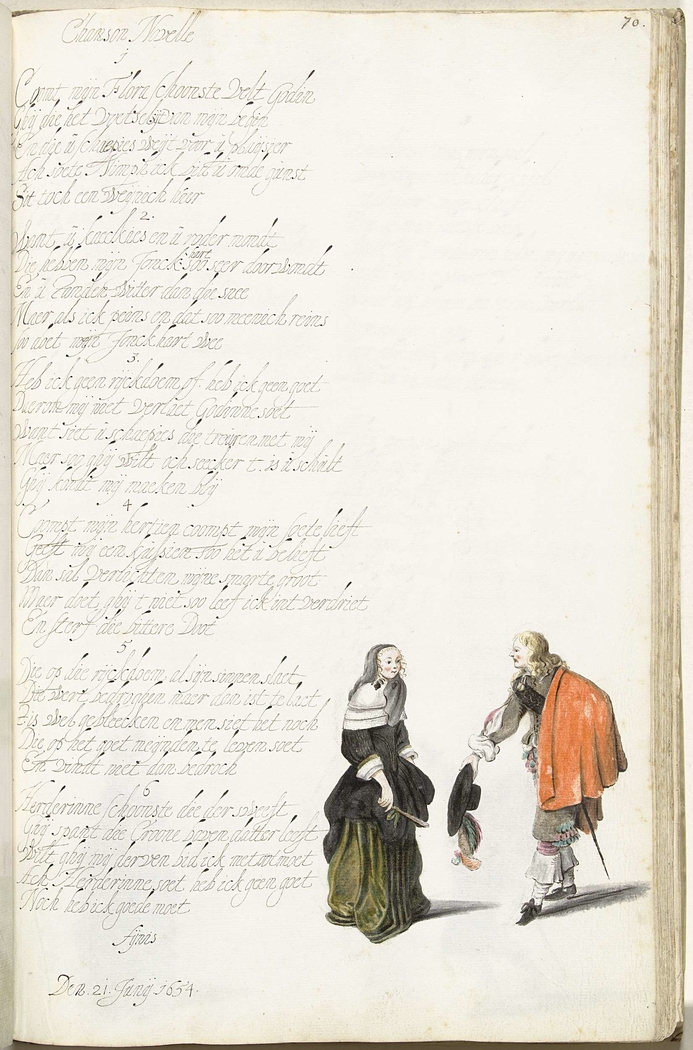 70.
Chanson Novelle
1
Coomt mijn Flora schoonste Velt Godin
Ghij die het
En die u schaepies weijt voor u plaijsier
Ach soete Nimph ick bidt u om de gunst
Sit toch een weijnich hier
2.
Want u kaeckies en u rooder mondt
Die hebben mijn Jonck hart soo seer doorwondt
En u handen witter dan die snee
Maer als ick peins en dat soo meenich reins
soo doet mijn Jonck hart wee
3.
Heb ick geen rijckdoem of heb ick geen goet
Daerom mij niet verlaet Godinne soet
Want siet u schaepies die treuren met mij
Maer soo ghij wilt och seecker t is u schult
Ghij kondt mij maeken blij
4
Coompt mijn hertien coompt mijn soete lieft
Geeft mij een kussien soo het u belieft
Dan sal verlichten mijne smarte groot
Maer doet ghij t niet soo leef ick int verdriet
En sterf die bittere Doot
5
Die op die rijckdoem al sijn sinnen slaet
Die wert bedroghen maer dan ist te laet
t is wel gebleecken en men siet het noch
Die op het goet meijnden te leven soet
En vindt niet dan bedroch
6
Herderinne schoonste die der weeft
Ghij spant die Croone boven datter leeft
Wilt ghij mij derven bid ick met ootmoet
Ach Herderinne soet heb ick geen goet
Noch heb ick goede moet
fijnis
Den. 21. Junij. 1654.